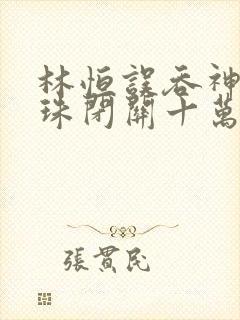 林恒誤吞神
珠閉關十萬
張貫民